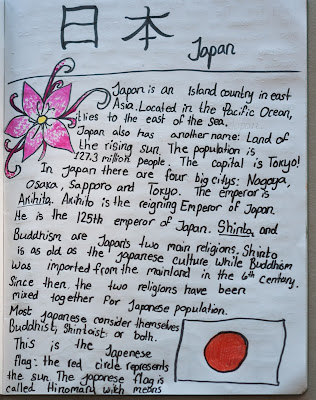 日本
Japan
Japan is an Island country in east
Asia. Located in the Pacific Ocean,
it lies to the east of the sea.
Japan also has another name: Land of
the rising sun. The population is
127.3 million people. The capital is Tokyo!
In Japan there are four big citys: Nagoya,
Osaka, Sapporo and Tokyo. The emperor is
Akihito. Akihito is the reigning Emperor of Japan
He is the 125th emperor of Japan. Shinto and
Buddhism are Japan's two main religions. Shinto
is as old as the japanese culture while Buddhism
was imported from the mainland in the 6th century.
Since then the two religions have been
mixed together for Japanese population.
Most japanese consider themselves
Buddhist, Shintoist or both.
This is the Japenese
flag: the red circle represents
the sun. The japanese flag is
called Hinomaru wich means